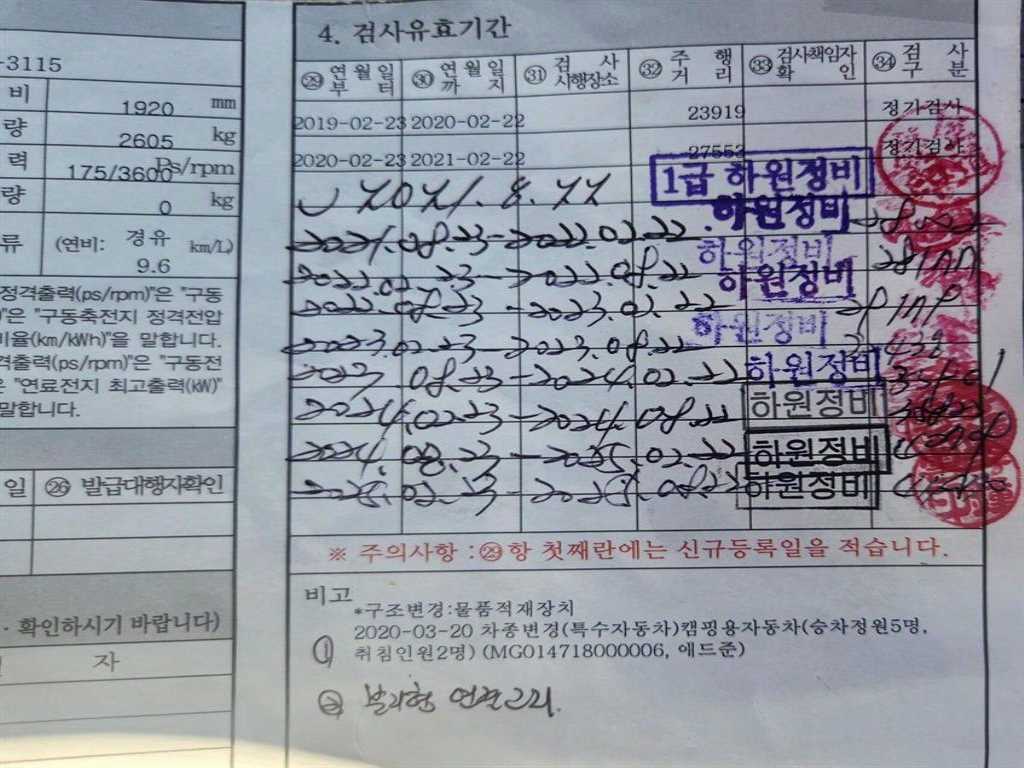 -3115
비 1920 mm
량 2605 kg
력 175/3600 Ps/rpm
량 0 kg
류 (연비: 경유 9.6 km/L)
정격출력(ps/rpm)"은 "구동
"은 "구동축전지 정격전압
비율(km/kWh)"을 말합니다.
격출력(ps/rpm)"은 "구동전
은 "연료전지 최고출력(kW)"
말합니다.
일 ㉖ 발급대행자확인
· 확인하시기 바랍니다)
자
4. 검사유효기간
㉙ 연월일부터 ㉚ 연월일까지 ㉛ 검사시행장소 ㉜ 주행거리 ㉝ 검사책임자확인 ㉞ 검사구분
2019-02-23 2020-02-22 23919 정기검사
2020-02-23 2021-02-22 27553 정기검사
2021.8.22 1급 하원정비
2021.08.23-2022.02.22 하원정비
2022.02.23-2022.08.22 하원정비
하원정비
2022.08.23-2023.02.22
2023.02.23-2023.08.22 하원정비
2023.08.23-2024.02.22 하원정비
2024.02.23-2024.08.22 하원정비
2024.08.23-2025.02.22 하원정비
2025.02.23-2025.08.22 하원정비
※ 주의사항 : ㉙항 첫째란에는 신규등록일을 적습니다.
비고
*구조변경:물품적재장치
① 2020-03-20 차종변경(특수자동차)캠핑용자동차(승차정원5명,
취침인원2명) (MG014718000006, 애드준)
② 분리형 연결고리.